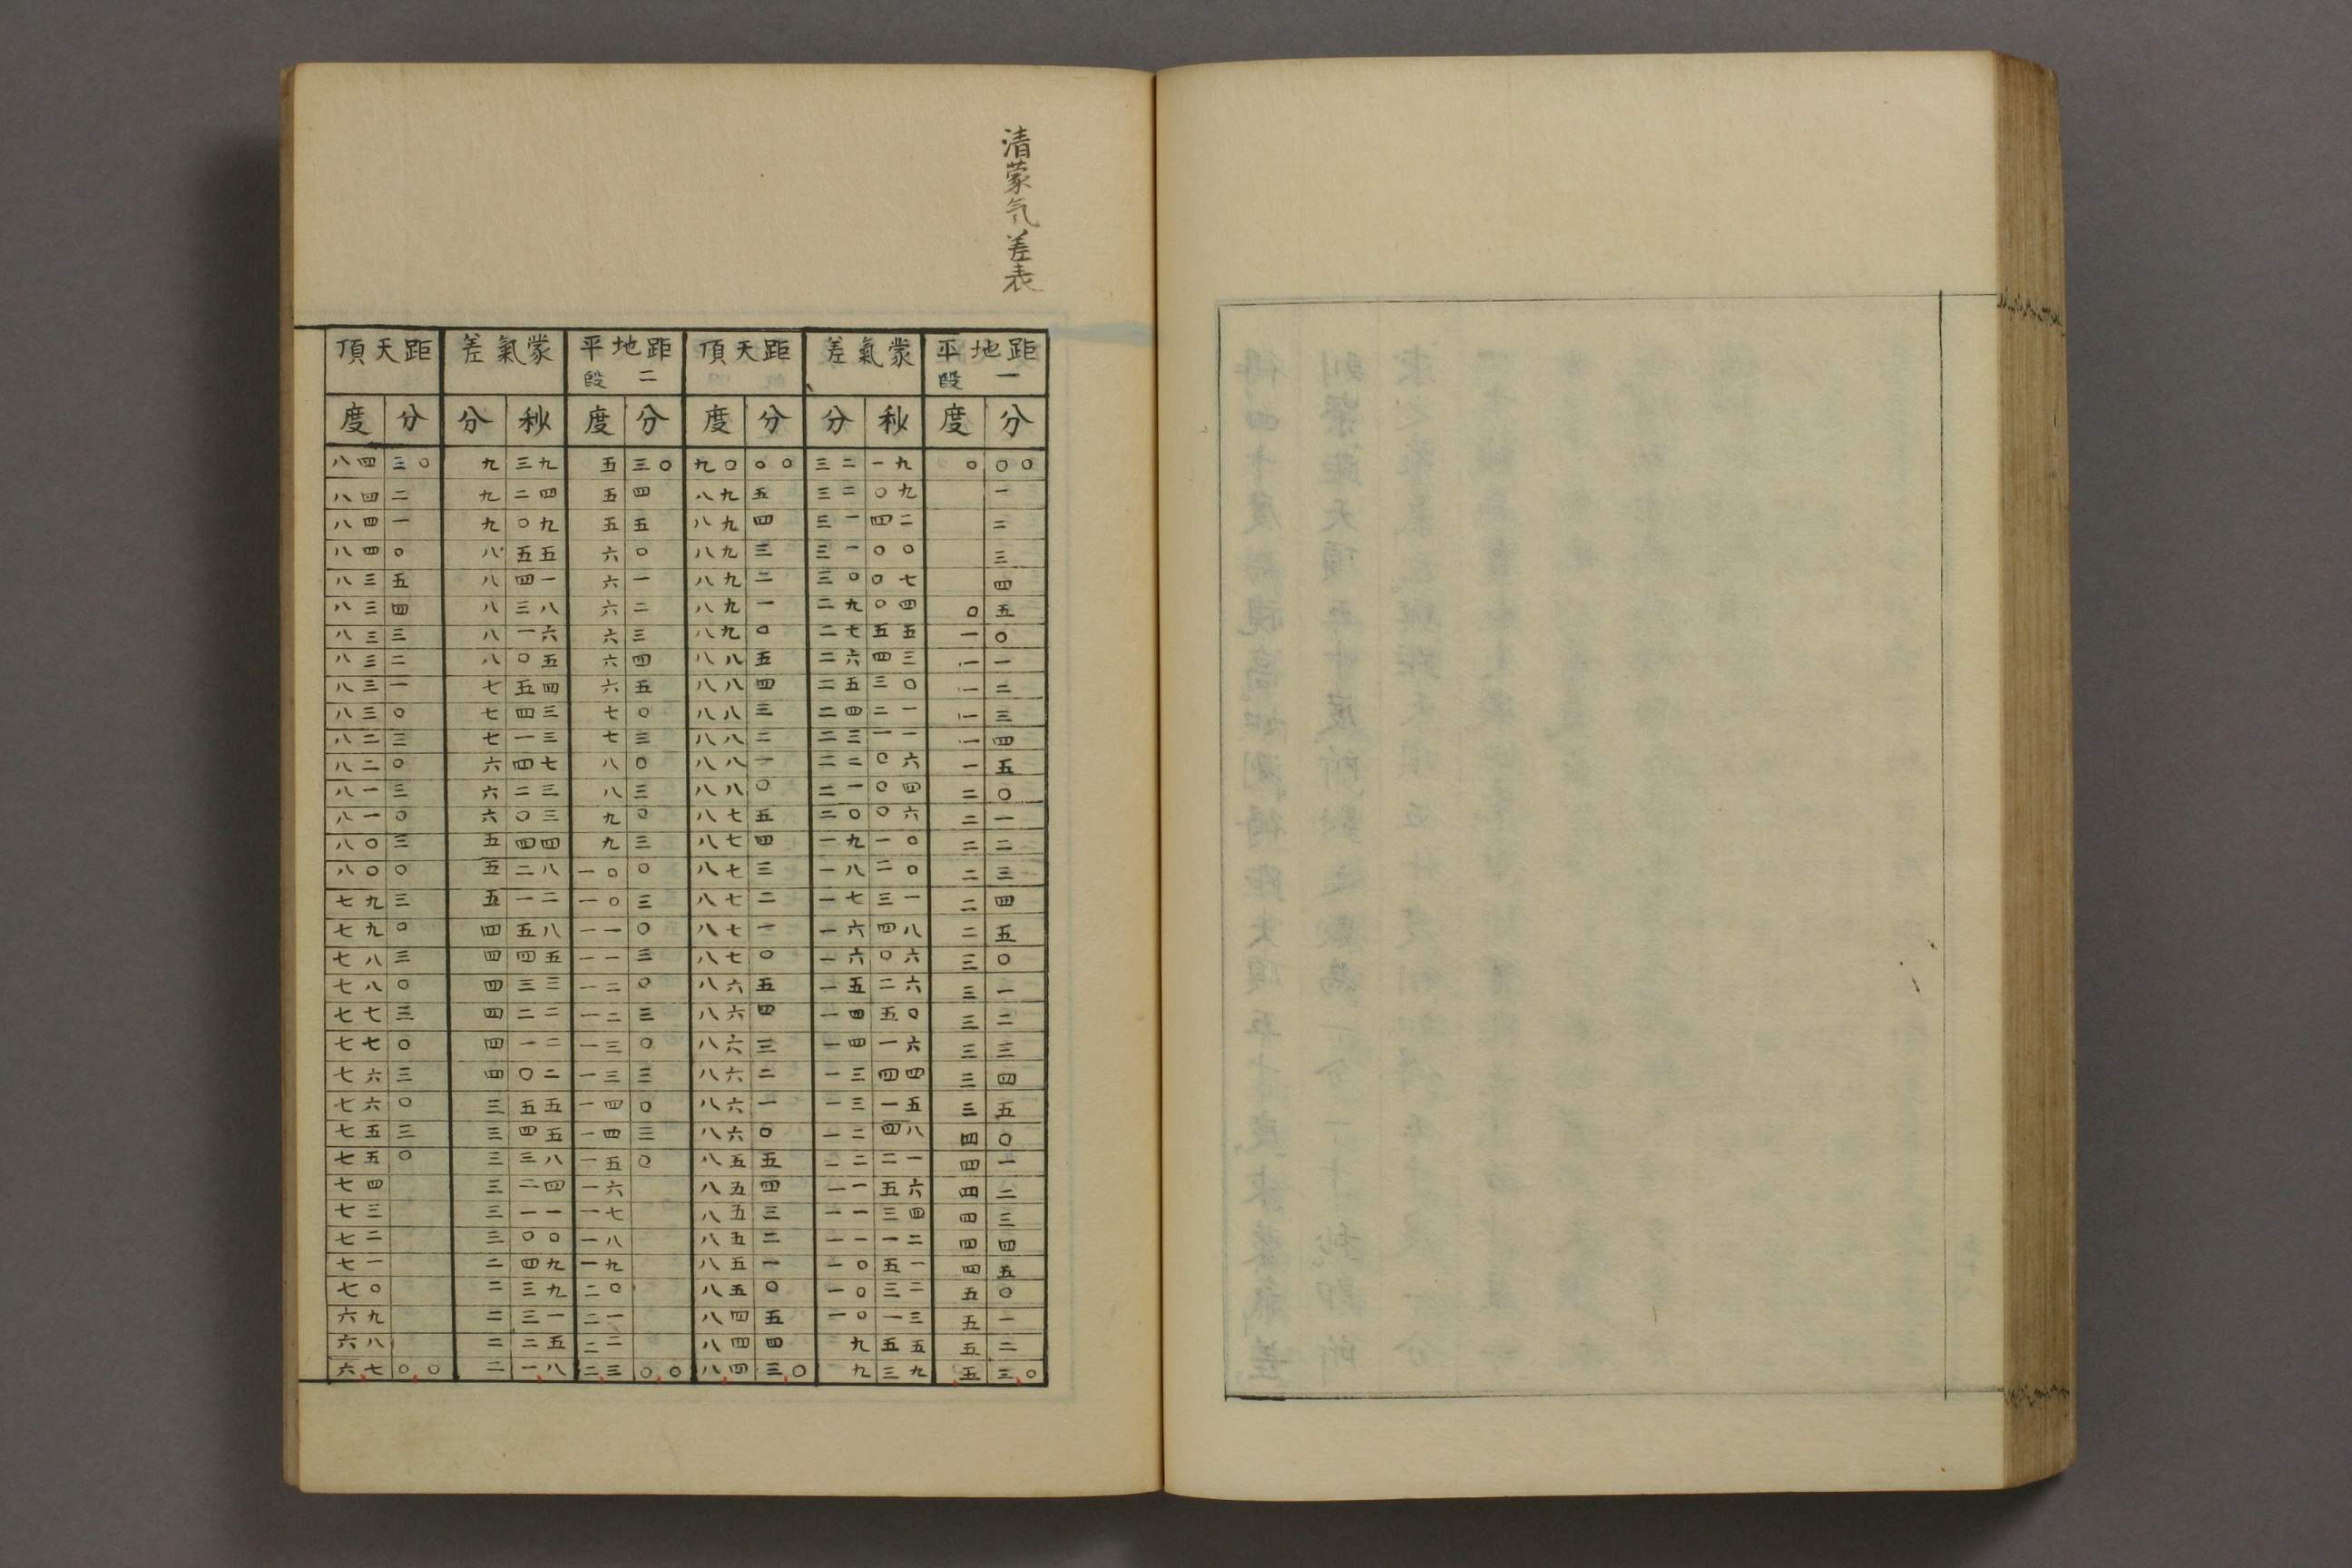 清蒙気差表
距地平 一段 蒙氣差 距天頂 距地平 二段 蒙氣差 距天頂
度 分 分 秒 度 分 度 分 分 秒 度 分
〇 〇〇 三二 一九 九〇 〇〇 五 三〇 九 三九 八四 三〇
一 三二 〇九 八九 五 五 四 九 二四 八四 二
二 三一 四二 八九 四 五 五 九 〇九 八四 一
三 三一 〇〇 八九 三 六 〇 八 五五 八四 〇
四 三〇 〇七 八九 二 六 一 八 四一 八三 五
〇 五 二九 〇四 八九 一 六 二 八 三八 八三 四
一 〇 二七 五五 八九 〇 六 三 八 一六 八三 三
一 一 二六 四三 八八 五 六 四 八 〇五 八三 二
一 二 二五 三〇 八八 四 六 五 七 五四 八三 一
一 三 二四 二一 八八 三 七 〇 七 四三 八三 〇
一 四 二三 一一 八八 二 七 三 七 一三 八二 三
一 五 二二 〇六 八八 一 八 〇 六 四七 八二 〇
二 〇 二一 〇四 八八 〇 八 三 六 二三 八一 三
二 一 二〇 〇六 八七 五 九 〇 六 〇三 八一 〇
二 二 一九 一〇 八七 四 九 三 五 四四 八〇 三
二 三 一八 二〇 八七 三 一〇 〇 五 二八 八〇 〇
二 四 一七 三一 八七 二 一〇 三 五 一二 七九 三
二 五 一六 四八 八七 一 一一 〇 四 五八 七九 〇
三 〇 一六 〇六 八七 〇 一一 三 四 四五 七八 三
三 一 一五 二六 八六 五 一二 〇 四 三三 七八 〇
三 二 一四 五〇 八六 四 一二 三 四 二二 七七 三
三 三 一四 一六 八六 三 一三 〇 四 一二 七七 〇
三 四 一三 四四 八六 二 一三 三 四 〇二 七六 三
三 五 一三 一五 八六 一 一四 〇 三 五五 七六 〇
四 〇 一二 四八 八六 〇 一四 三 三 四五 七五 三
四 一 一二 二一 八五 五 一五 〇 三 三八 七五 〇
四 二 一一 五六 八五 四 一六 三 二四 七四
四 三 一一 三四 八五 三 一七 三 一一 七三
四 四 一一 一二 八五 二 一八 三 〇〇 七二
四 五 一〇 五一 八五 一 一九 二 四九 七一
五 〇 一〇 三二 八五 〇 二〇 二 三九 七〇
五 一 一〇 一三 八四 五 二一 二 三一 六九
五 二 九 五五 八四 四 二二 二 二五 六八
五 三〇 九 三九 八四 三〇 二三 〇〇 二 一八 六七 〇〇